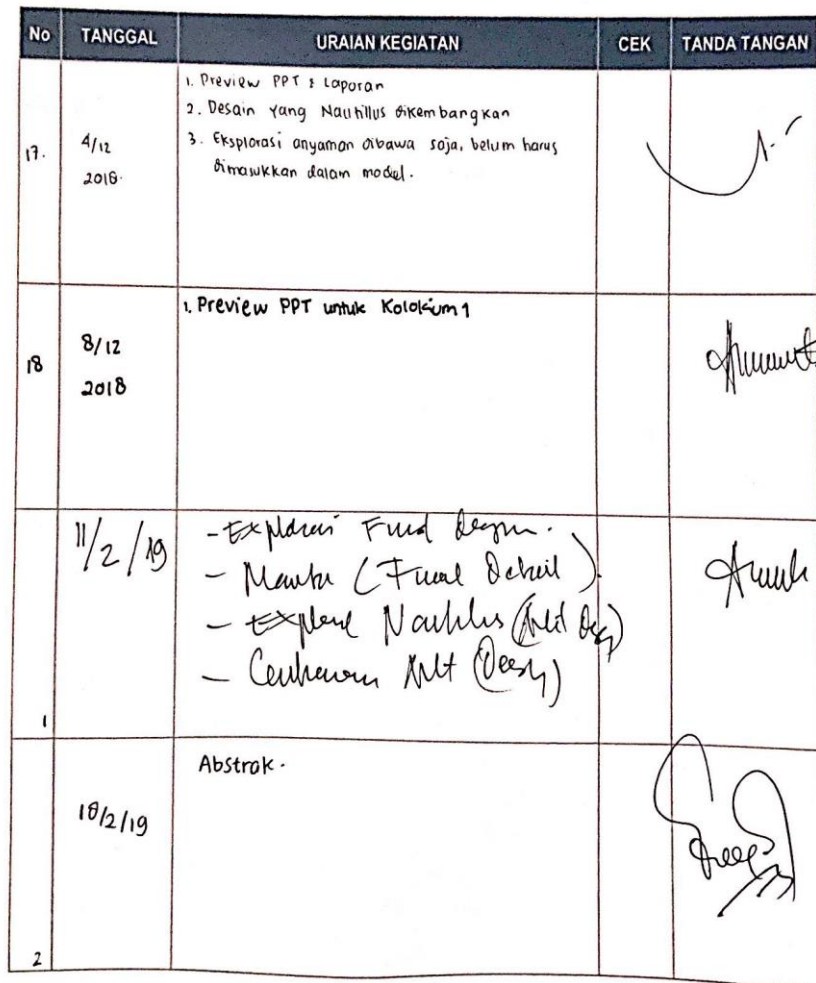 No TANGGAL URAIAN KEGIATAN CEK TANDA TANGAN
17. 4/12 2018.
1. Preview PPT & Laporan
2. Desain yang Nautillus dikembangkan
3. Eksplorasi anyaman dibawa saja, belum harus
dimasukkan dalam model.
18 8/12 2018
1. Preview PPT untuk Kolokium 1
1 11/2/19
- Explorasi
- (Final Detail).
- Explore Nautilus
-
2 18/2/19
Abstrak.